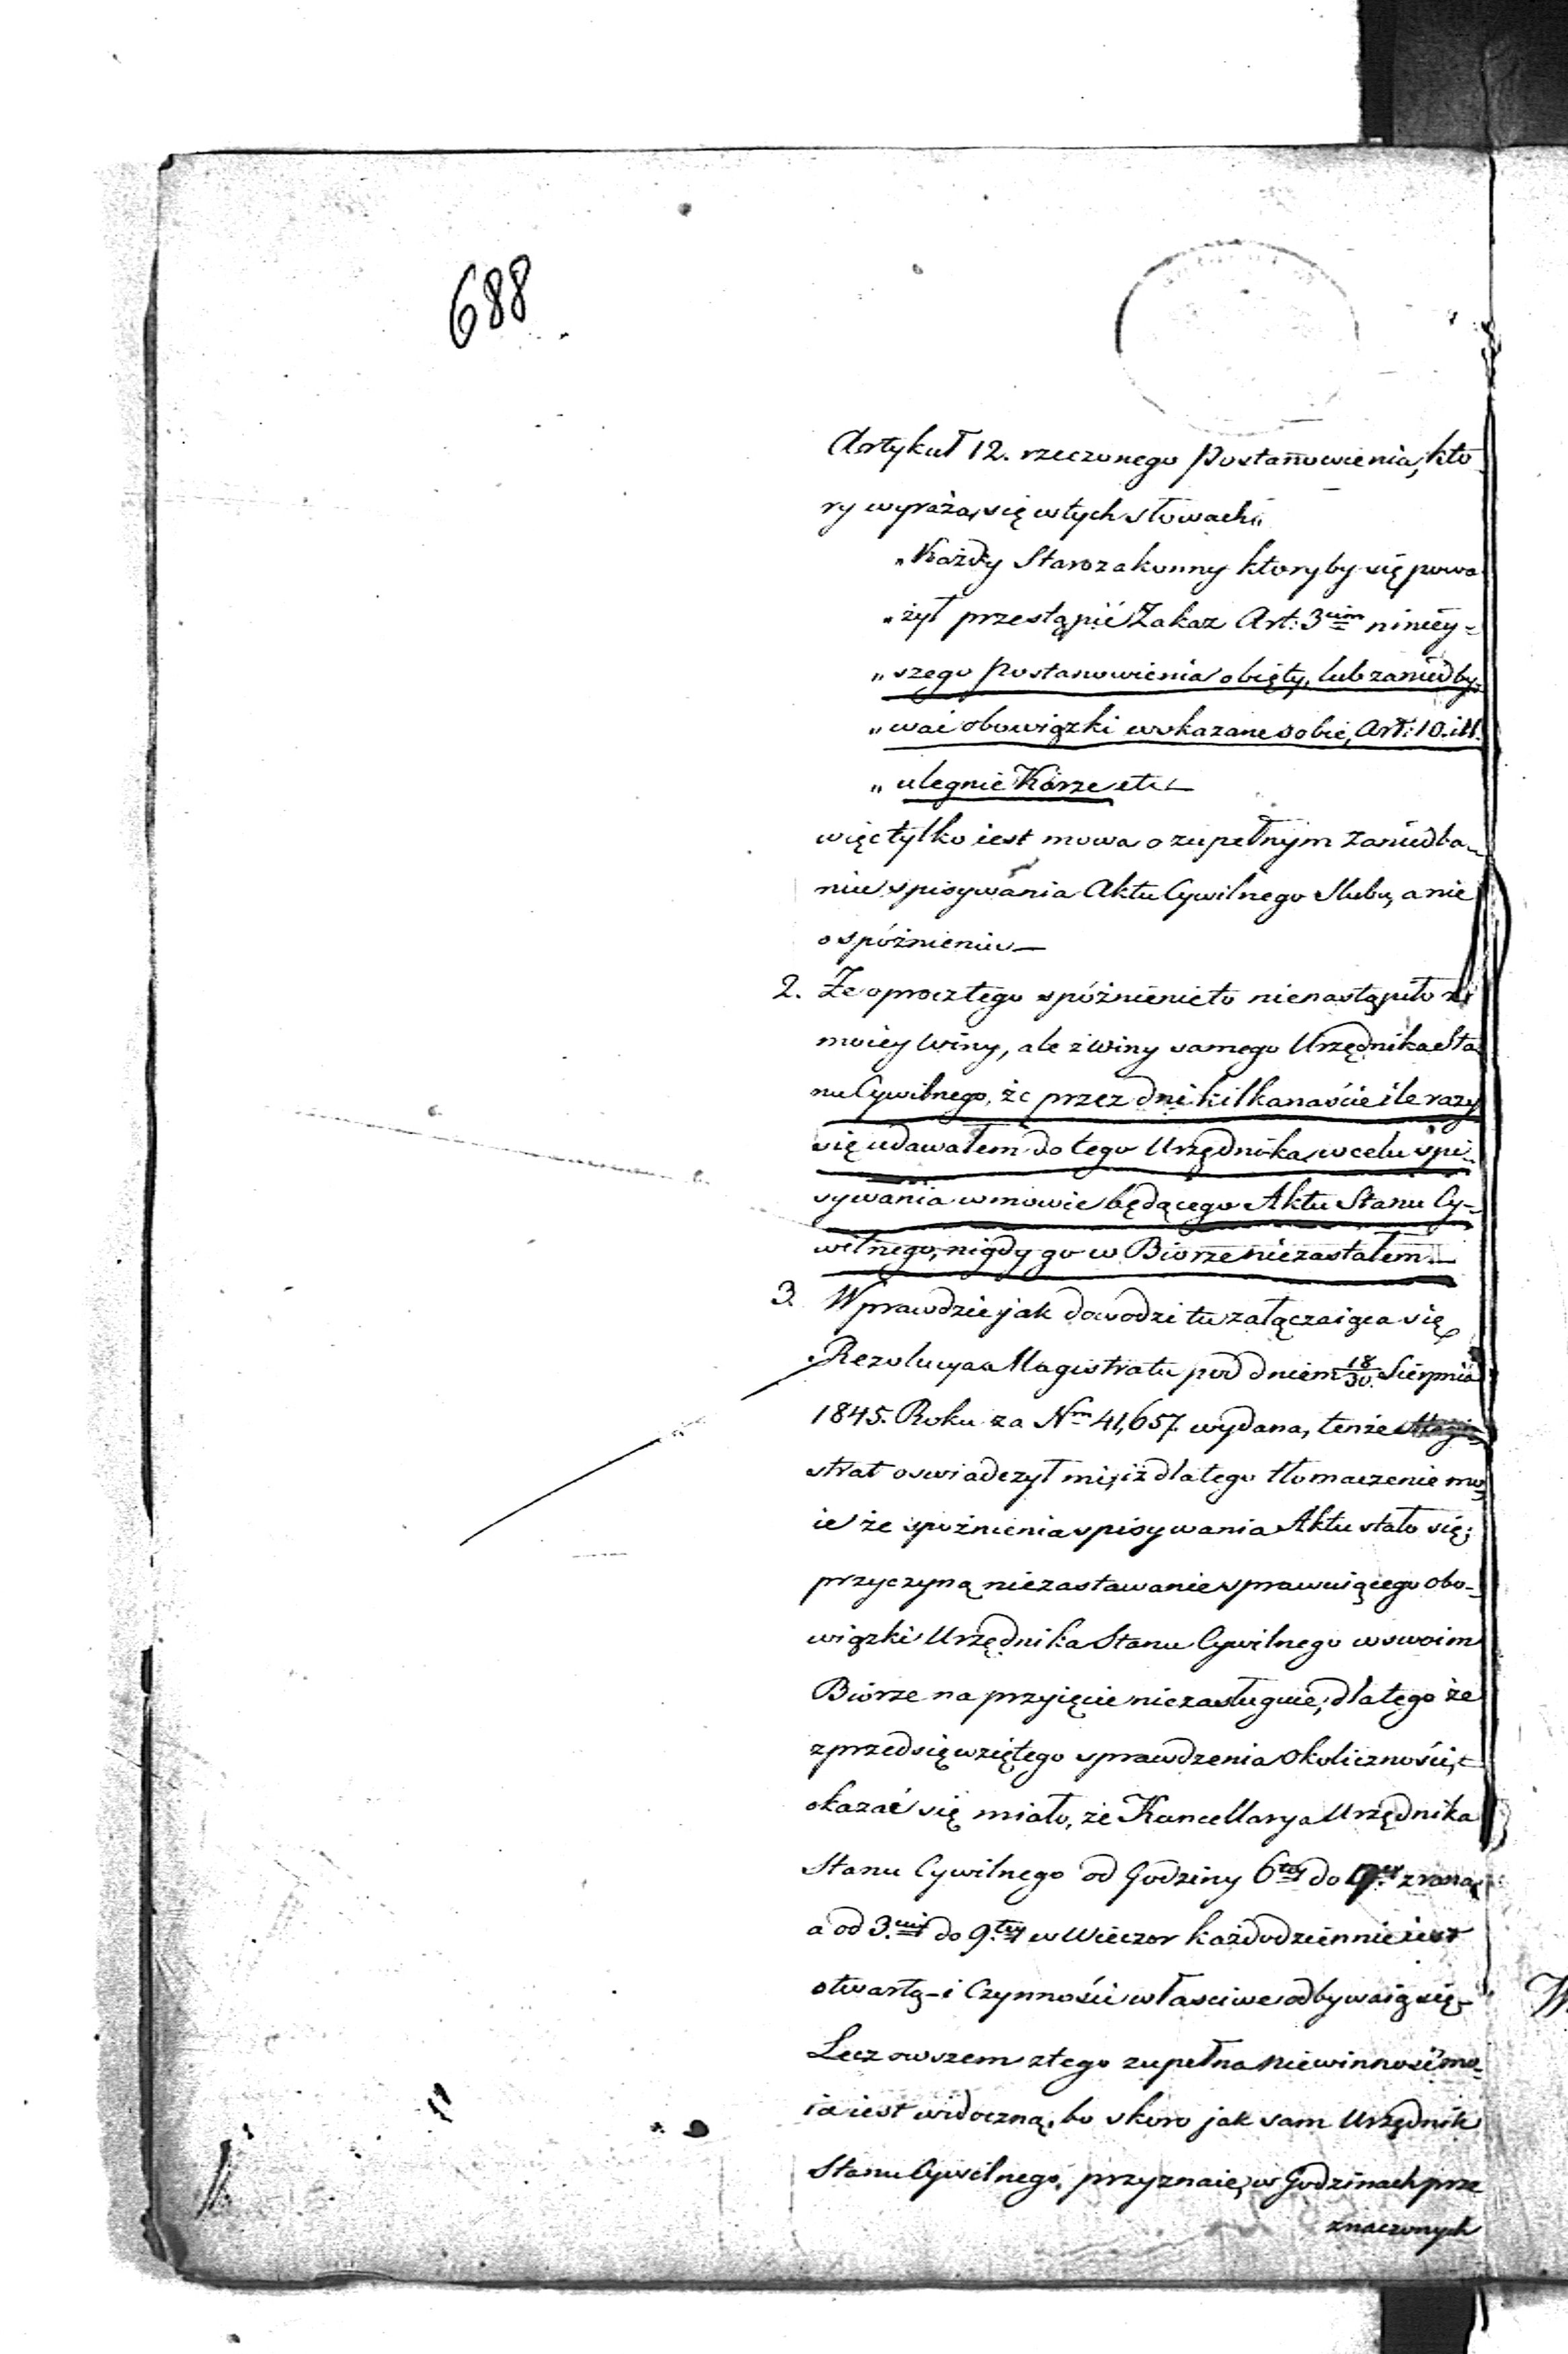 688
Artykuł 12. rzeczonego Postanowienia, kto
ry wyraża się w tych słowach„
„Każdy Starozakonny ktoryby się powa
„żył przestąpić Zakaz Art: 3cim niniey-
„szego Postanowienia obięty, lub zaniedby-
„wać obowiązki wskazane sobie, Art: 10. i 11.
„ulegnie Karze etc —
więc tylko iest mowa o zupełnym zaniedba-
niu spisywania Aktu Cywilnego Slubu, a nie
o spóźnieniu —
2. Że oprocz tego spóźnienie to nienastąpiło z
moiey winy, ale z winy samego Urzędnika Sta
nu Cywilnego, że przez dni kilkanaście ile razy
się udawałem do tego Urzędnika w celu spi-
sywania w mowie będącego Aktu Stanu Cy-
wilnego, nigdy go w Biorze niezastałem —
3. Wprawdzie jak dowodzi tu załączaiąca się
Rezolucya Magistratu pod dniem 18/30. Sierpnia
1845. Roku za Nm 41,657. wydana, tenże Magi-
strat oswiadczył mi, iż dlatego tłomaczenie mo-
ie że spoźnienia spisywania Aktu stało się
przyczyną niezastawanie sprawuiącego obo-
wiązki Urzędnika Stanu Cywilnego w swoim
Biorze na przyięcie niezasługuie, dlatego że
z przedsięwziętego sprawdzenia okoliczności,
okazać się miało, że Kancellarya Urzędnika
Stanu Cywilnego od Godziny 6tey do zrana,
a od 3ciey do 9tey w Wieczor każdodziennie iest
otwartą – i Czynności właściwe odbywaią się –
Lecz owszem z tego zupełna niewinność mo-
ia iest widoczną, bo skoro jak sam Urzędnik
Stanu Cywilnego, przyznaie, w Godzinach prze
znaczonych